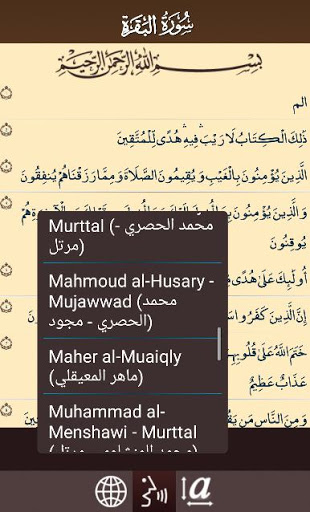 سُورَةُ البَقَرَةِ
بِسْمِ اللهِ الرَّحْمنِ الرَّحِيمِ
الم
ذَلِكَ الْكِتَابُ لَا رَيْبَ ۛ فِيهِ ۛ هُدًى لِّلْمُتَّقِينَ
الَّذِينَ يُؤْمِنُونَ بِالْغَيْبِ وَيُقِيمُونَ الصَّلَاةَ وَمِمَّا رَزَقْنَاهُمْ يُنفِقُونَ
وَالَّذِينَ يُؤْمِنُونَ
يُوقِنُونَ
أُولَٰئِكَ عَلَىٰ هُدًى
إِنَّ الَّذِينَ كَفَرُوا
خَتَمَ اللَّهُ عَلَىٰ قُلُوبِهِمْ
عَذَابٌ عَظِيمٌ
وَمِنَ النَّاسِ مَن
Murttal (محمد الحصري -
مرتل)
Mahmoud al-Husary -
Mujawwad (محمد
الحصري - مجود)
Maher al-Muaiqly
(ماهر المعيقلي)
Muhammad al-
Menshawi - Murttal
(محمد المنشاوي - مرتل)
a